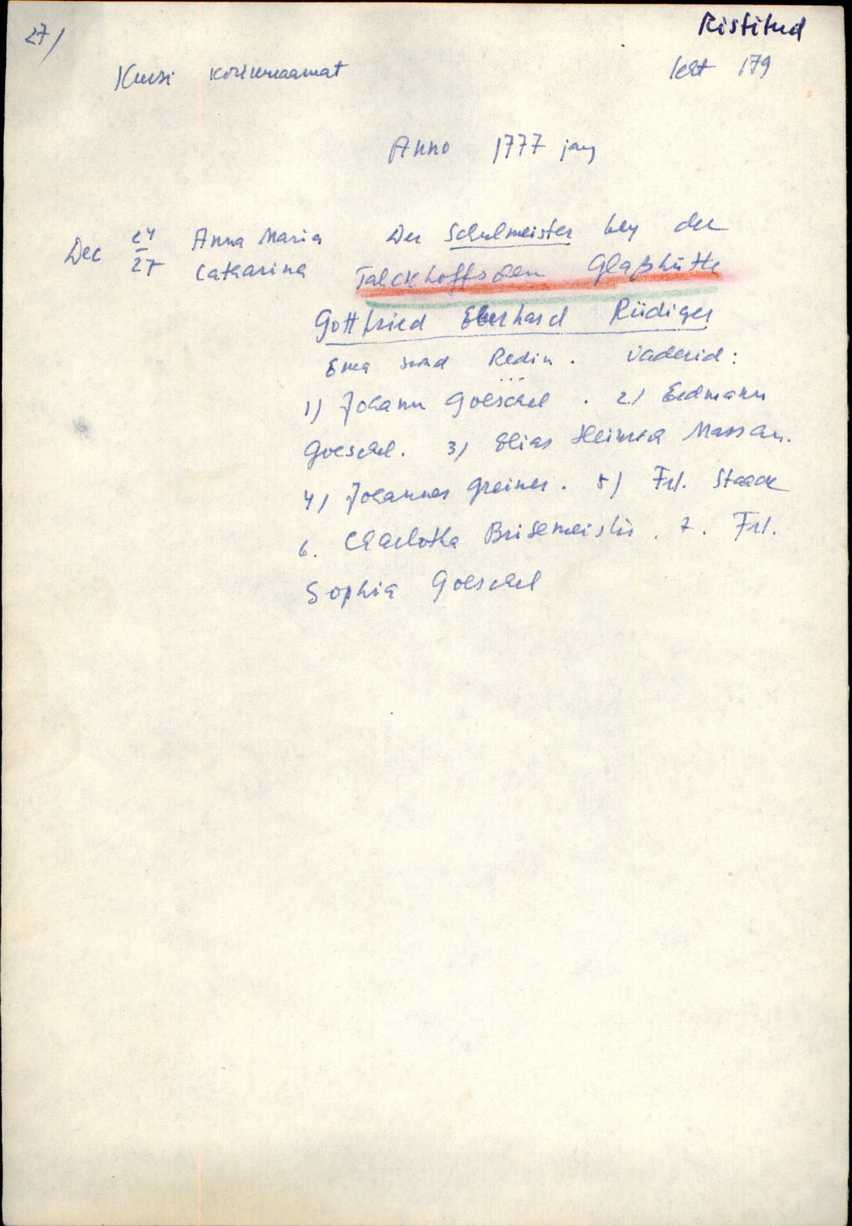 27/
Ristitud
Kursi kirikuraamat leht 179
Anno 1777 jarg
Dec 24/27 Anna Maria Der Schulmeister bey der
Catharina Talckhoffschen Glaßhütte
Gottfried Eberhard Rüdiger
Ema snd Redin. Vaderid:
1) Johann Goeschel. 2) Erdmann
Goeschel. 3) Elias Heinrich
4) Johannes Greiner. 5) Frl. Staack
6. Charlotta 7. Frl.
Sophia Goeschel